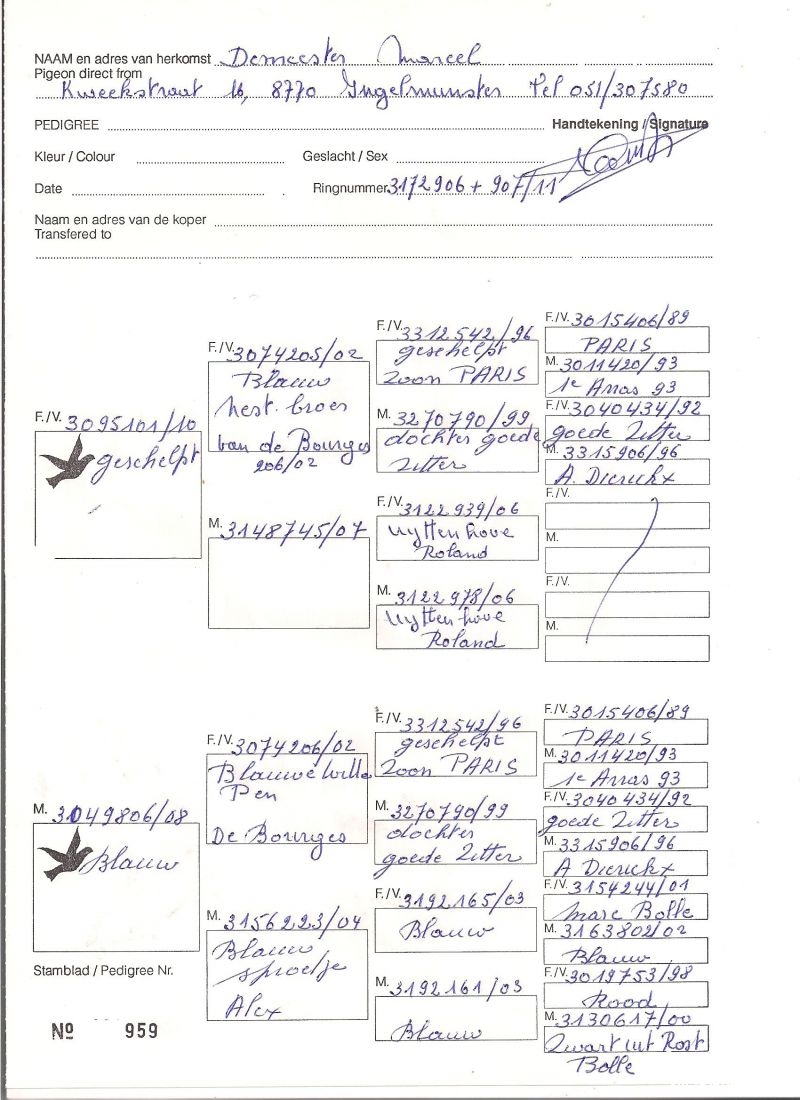 NAAM en adres van herkomst Demeester Marcel
Pigeon direct from
Kweekstraat 16, 8770 Ingelmunster Tel 051/307580
PEDIGREE
Handtekening / Signature
Kleur / Colour
Geslacht / Sex
Date
Ringnummer 3172906 + 907/11
Naam en adres van de koper
Transfered to
F./V. 3095101/10
geschelpt
F./V. 3074205/02
Blauw
nest. broer
van de Bourges
206/02
M. 3148745/07
F./V. 3312542/96
geschelpt
zoon PARIS
M. 3270790/99
dochter goede
Zitter
F./V. 3122939/06
Uyttenhove
Roland
M. 3122978/06
Uyttenhove
Roland
F./V. 3015406/89
PARIS
M. 3011420/93
1e Arras 93
F./V. 3040434/92
goede Zitter
M. 3315906/96
A. Dierickx
F./V.
M.
F./V.
M.
M. 3049806/08
Blauw
F./V. 3074206/02
Blauwe Witte
Pen
De Bourges
M. 3156223/04
Blauw
sproetje
Alex
F./V. 3312542/96
geschelpt
Zoon PARIS
M. 3270790/99
dochter
goede Zitter
F./V. 3192165/03
Blauw
M. 3192161/03
Blauw
F./V. 3015406/89
PARIS
M. 3011420/93
1e Arras 93
F./V. 3040434/92
goede Zitter
M. 3315906/96
A Dierickx
F./V. 3154244/01
Marc Bolle
M. 3163802/02
Blauw
F./V. 3019753/98
Rood
M. 3130617/00
Zwart uit Rost
Bolle
Stamblad / Pedigree Nr.
Nº 959